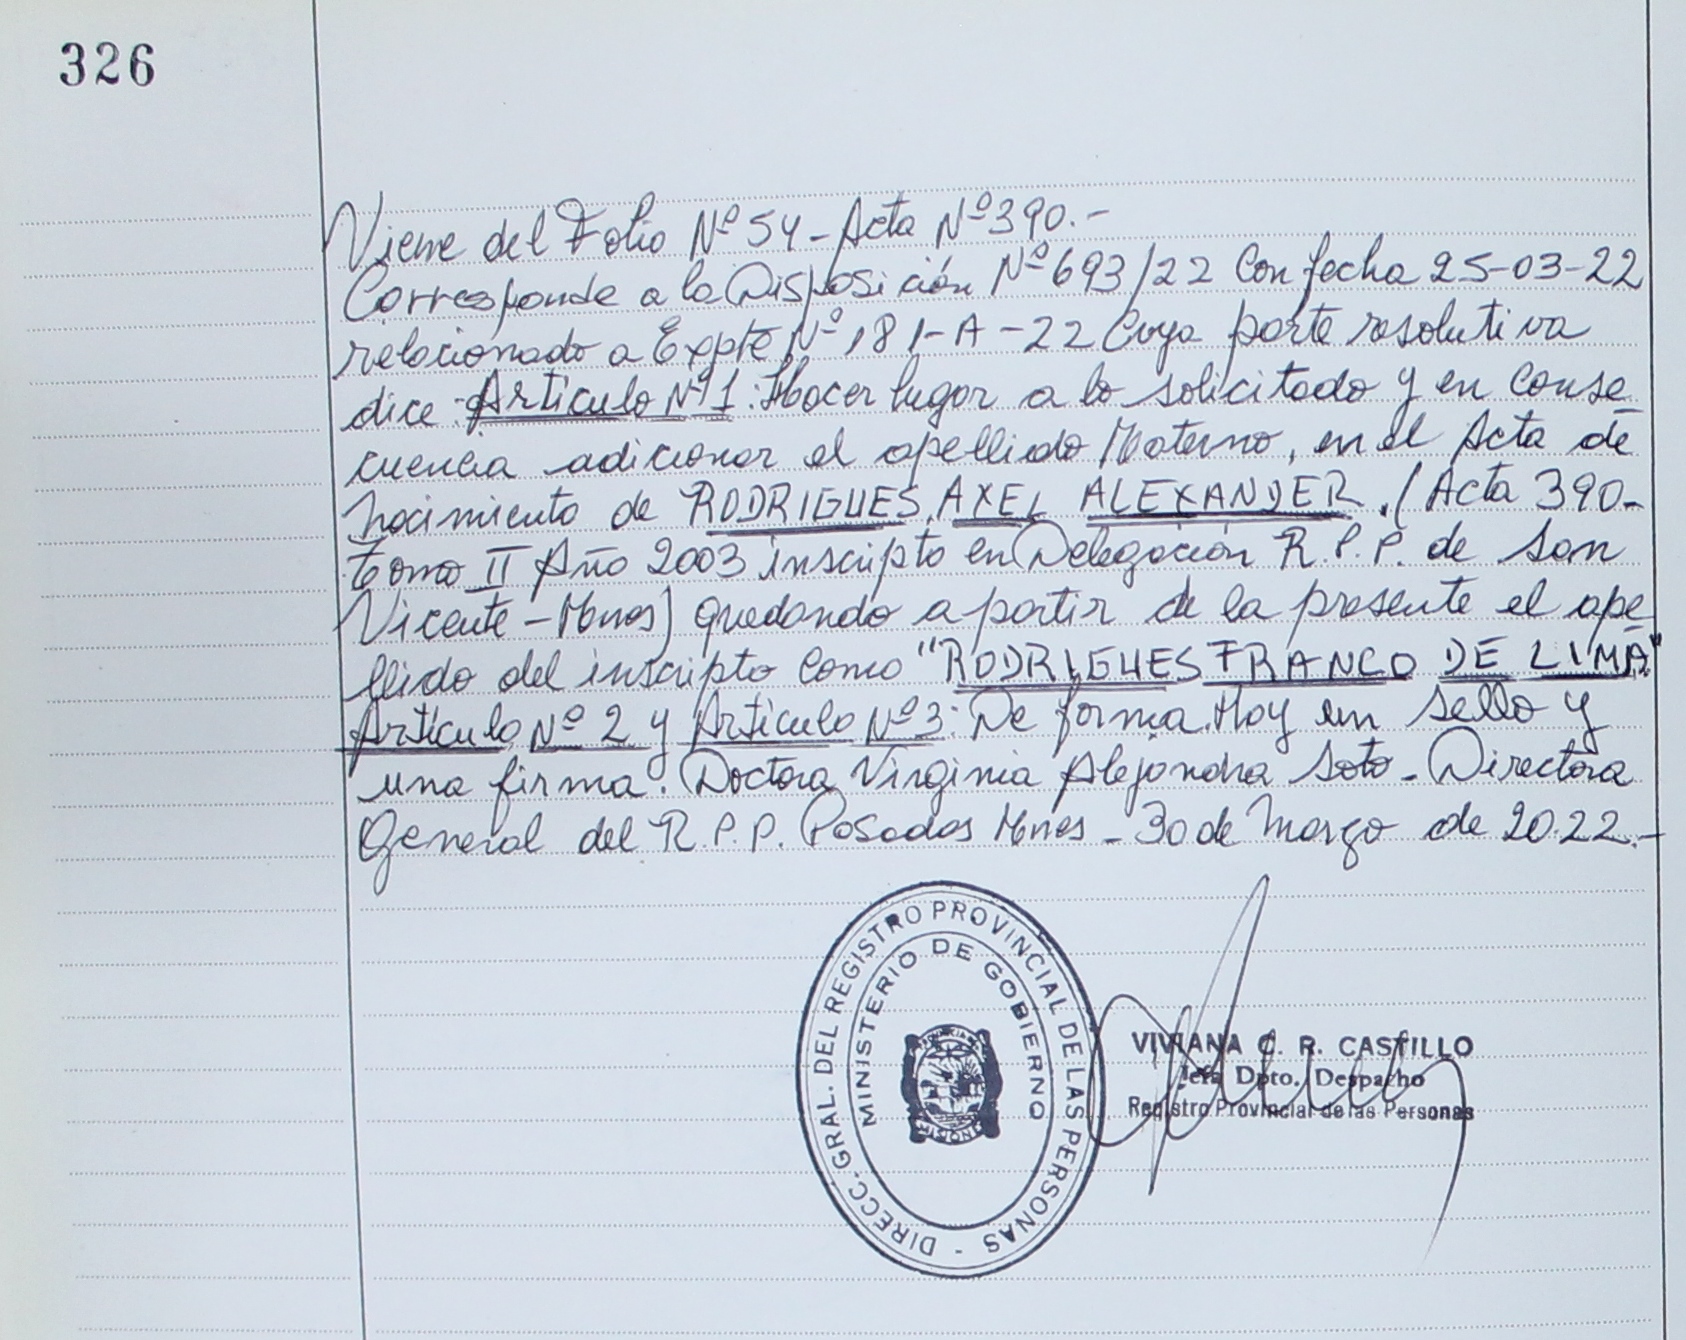 326
Viene del Folio Nº 54 - Acta Nº 390.-
Corresponde a la Disposición Nº 693/22 Con fecha 25-03-22
relacionado a Expte Nº 181-A-22 Cuya parte resolutiva
dice: Artículo Nº 1: Hacer lugar a lo solicitado y en conse
cuencia adicionar el apellido Materno, en el Acta de
nacimiento de RODRIGUES, AXEL ALEXANDER, (Acta 390-
tomo II Año 2003 inscripto en Delegación R.P.P. de San
Vicente - Mnes) quedando a partir de la presente el ape
llido del inscripto como "RODRIGUES FRANCO DE LIMA"
Artículo Nº 2 y Artículo Nº 3: De forma. Hay un sello y
una firma. Doctora Virginia Alejandra Soto - Directora
General del R.P.P. Posadas Mnes - 30 de Marzo de 2022.-
DIRECC. GRAL. DEL REGISTRO PROVINCIAL DE LAS PERSONAS -
MINISTERIO DE GOBIERNO
PROVINCIA DE
MISIONES
VIVIANA C. R. CASTILLO
Jefa Dpto. Despacho
Registro Provincial de las Personas